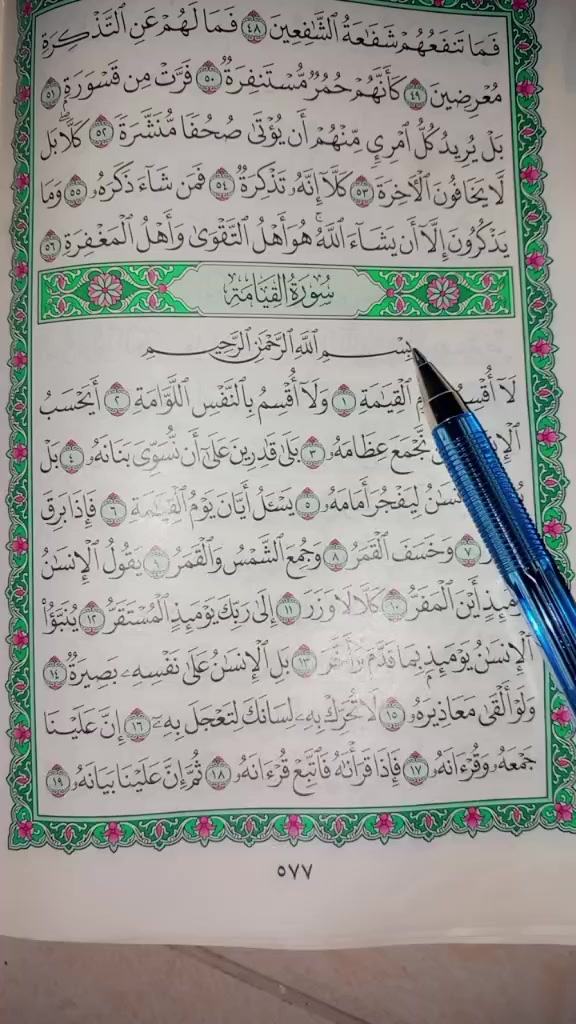 فَمَا تَنفَعُهُمْ شَفَٰعَةُ ٱلشَّٰفِعِينَ ٤٨ فَمَا لَهُمْ عَنِ ٱلتَّذْكِرَةِ
مُعْرِضِينَ ٤٩ كَأَنَّهُمْ حُمُرٌ مُّسْتَنفِرَةٌ ٥٠ فَرَّتْ مِن قَسْوَرَةٍ ٥١
بَلْ يُرِيدُ كُلُّ ٱمْرِئٍ مِّنْهُمْ أَن يُؤْتَىٰ صُحُفًا مُّنَشَّرَةً ٥٢ كَلَّا ۖ بَل
لَّا يَخَافُونَ ٱلْأَخِرَةَ ٥٣ كَلَّآ إِنَّهُۥ تَذْكِرَةٌ ٥٤ فَمَن شَآءَ ذَكَرَهُۥ ٥٥ وَمَا
يَذْكُرُونَ إِلَّآ أَن يَشَآءَ ٱللَّهُ ۚ هُوَ أَهْلُ ٱلتَّقْوَىٰ وَأَهْلُ ٱلْمَغْفِرَةِ ٥٦
سُورَةُ القِيَامَةِ
بِسْمِ ٱللَّهِ ٱلرَّحْمَٰنِ ٱلرَّحِيمِ
لَآ أُقْسِمُ ٱلْقِيَٰمَةِ ١ وَلَآ أُقْسِمُ بِٱلنَّفْسِ ٱللَّوَّامَةِ ٢ أَيَحْسَبُ
نَّجْمَعَ عِظَامَهُۥ ٣ بَلَىٰ قَٰدِرِينَ عَلَىٰٓ أَن نُّسَوِّىَ بَنَانَهُۥ ٤ بَلْ
لِيَفْجُرَ أَمَامَهُۥ ٥ يَسْـَٔلُ أَيَّانَ يَوْمُ ٱلْقِيَٰمَةِ ٦ فَإِذَا بَرِقَ
٧ وَخَسَفَ ٱلْقَمَرُ ٨ وَجُمِعَ ٱلشَّمْسُ وَٱلْقَمَرُ ٩ يَقُولُ ٱلْإِنسَٰنُ
أَيْنَ ٱلْمَفَرُّ ١٠ كَلَّا لَا وَزَرَ ١١ إِلَىٰ رَبِّكَ يَوْمَئِذٍ ٱلْمُسْتَقَرُّ ١٢ يُنَبَّؤُا۟
ٱلْإِنسَٰنُ يَوْمَئِذٍۭ بِمَا قَدَّمَ وَأَخَّرَ ١٣ بَلِ ٱلْإِنسَٰنُ عَلَىٰ نَفْسِهِۦ بَصِيرَةٌ ١٤
وَلَوْ أَلْقَىٰ مَعَاذِيرَهُۥ ١٥ لَا تُحَرِّكْ بِهِۦ لِسَانَكَ لِتَعْجَلَ بِهِۦٓ ١٦ إِنَّ عَلَيْنَا
جَمْعَهُۥ وَقُرْءَانَهُۥ ١٧ فَإِذَا قَرَأْنَٰهُ فَٱتَّبِعْ قُرْءَانَهُۥ ١٨ ثُمَّ إِنَّ عَلَيْنَا بَيَانَهُۥ ١٩
٥٧٧